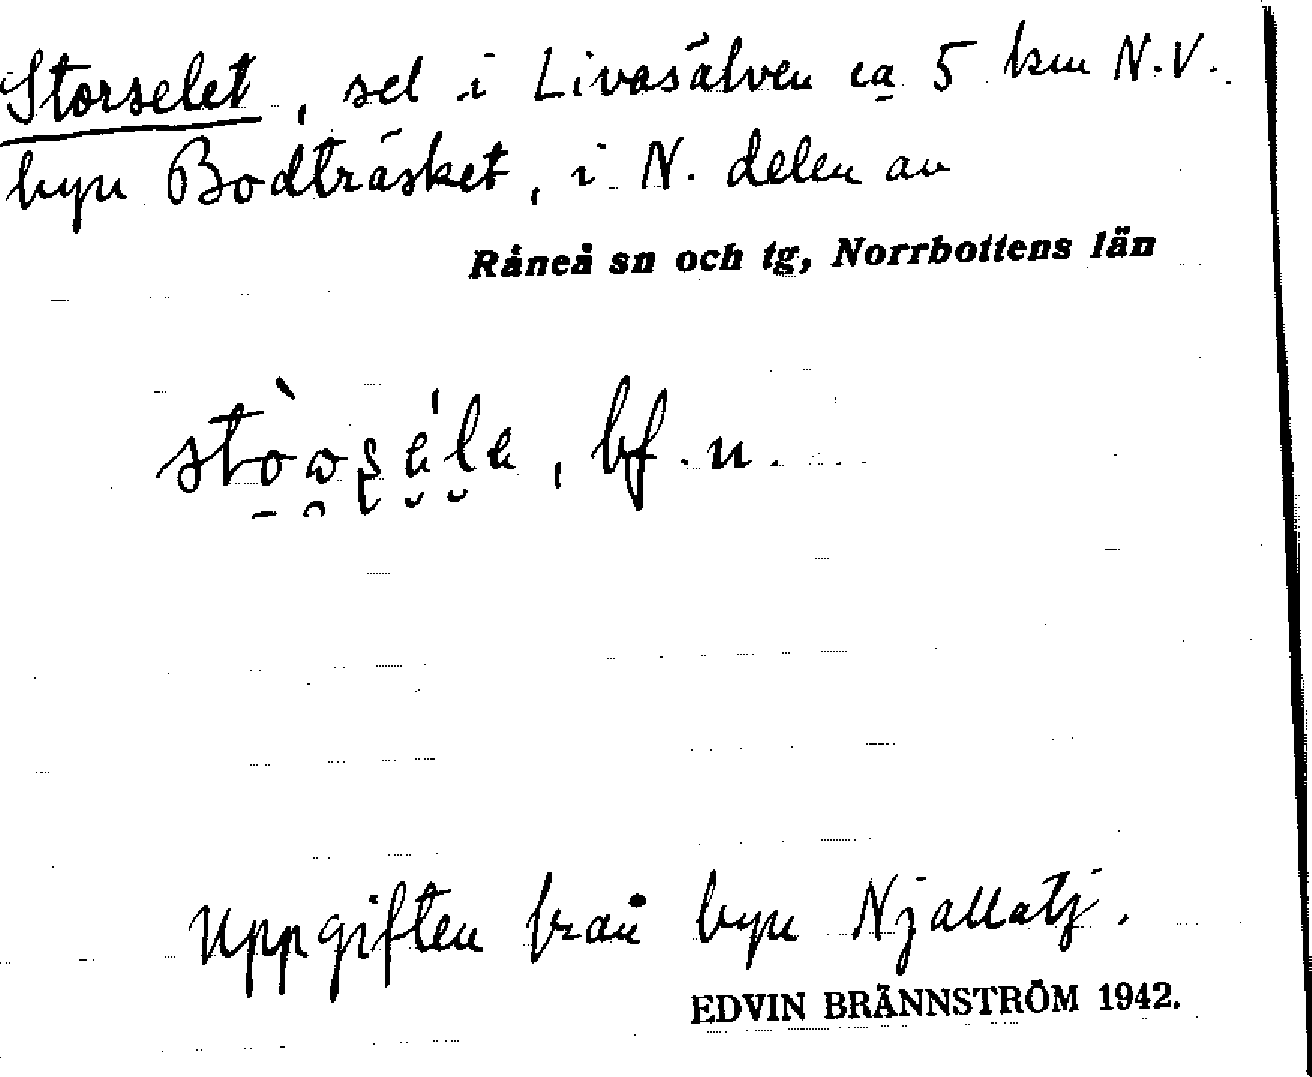 Storselet, sel i Livasälven ca 5 km N.V.
byn Bodträsket, i N. delen av
Råneå sn och tg, Norrbottens län
bf. n.
Uppgiften från byn Njallatj.
EDVIN BRÄNNSTRÖM 1942.